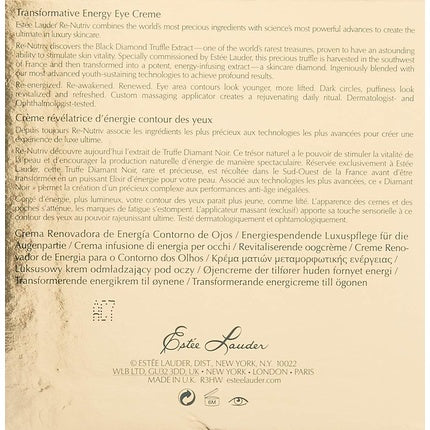 Transformative Energy Eye Creme
Estée Lauder Re-Nutriv combines the world's most precious ingredients with science's most powerful advances to create the
ultimate in luxury skincare.
Re-Nutriv discovers the Black Diamond Truffle Extract—one of the world's rarest treasures, proven to have an astounding
ability to stimulate skin vitality. Specially commissioned by Estée Lauder, this precious truffle is harvested in the southwest
of France and then transformed into a potent, energy-infusing extract—a skincare diamond. Ingeniously blended with
our most advanced youth-sustaining technologies to achieve profound results.
Re-energized. Re-awakened. Renewed. Eye area contours look younger, more lifted. Dark circles, puffiness look
revitalized and refreshed. Custom massaging applicator creates a rejuvenating daily ritual. Dermatologist- and
Ophthalmologist-tested.
Crème révélatrice d'énergie contour des yeux
Depuis toujours Re-Nutriv associe les ingrédients les plus précieux aux technologies les plus avancées pour créer une
expérience de luxe ultime.
Re-Nutriv découvre aujourd'hui l'extrait de Truffe Diamant Noir. Ce trésor naturel a le pouvoir de stimuler la vitalité de
la peau et d'encourager la production naturelle d'énergie de manière spectaculaire. Réservée exclusivement à Estée
Lauder, cette Truffe Diamant Noir, rare et précieuse, est récoltée dans le Sud-Ouest de la France avant d'être
transformée en un puissant Elixir d'énergie pour votre peau. Associé aux technologies les plus avancées, ce « Diamant
Noir » permet la création d'un précieux complexe aux performances anti-âge inégalées.
Gorgé d'énergie, plus lumineux, votre contour des yeux paraît plus jeune, comme lifté. L'apparence des cernes et des
poches s'atténue, les marques de fatigue s'estompent. L'applicateur massant (exclusif) apporte sa touche sensorielle à ce
contour des yeux au pouvoir rajeunissant ultime. Testé dermatologiquement et ophtalmologiquement.
Crema Renovadora de Energía Contorno de Ojos / Energiespendende Luxuspflege für die
Augenpartie / Crema infusione di energia per occhi / Revitaliserende oogcrème / Creme Reno-
vador de Energia para o Contorno dos Olhos / Κρέμα ματιών μεταμορφωτικής ενέργειας /
Luksusowy krem odmładzający pod oczy / Øjencreme der tilfører huden fornyet energi /
Transformerende energikrem til øynene / Transformerande energicreme till ögonen
AC7
Estée Lauder
© ESTÉE LAUDER, DIST., NEW YORK, N.Y. 10022
WLB LTD, GU32 3DD, UK • NEW YORK • LONDON • PARIS
MADE IN U.K. R3HW esteelauder.com
6M